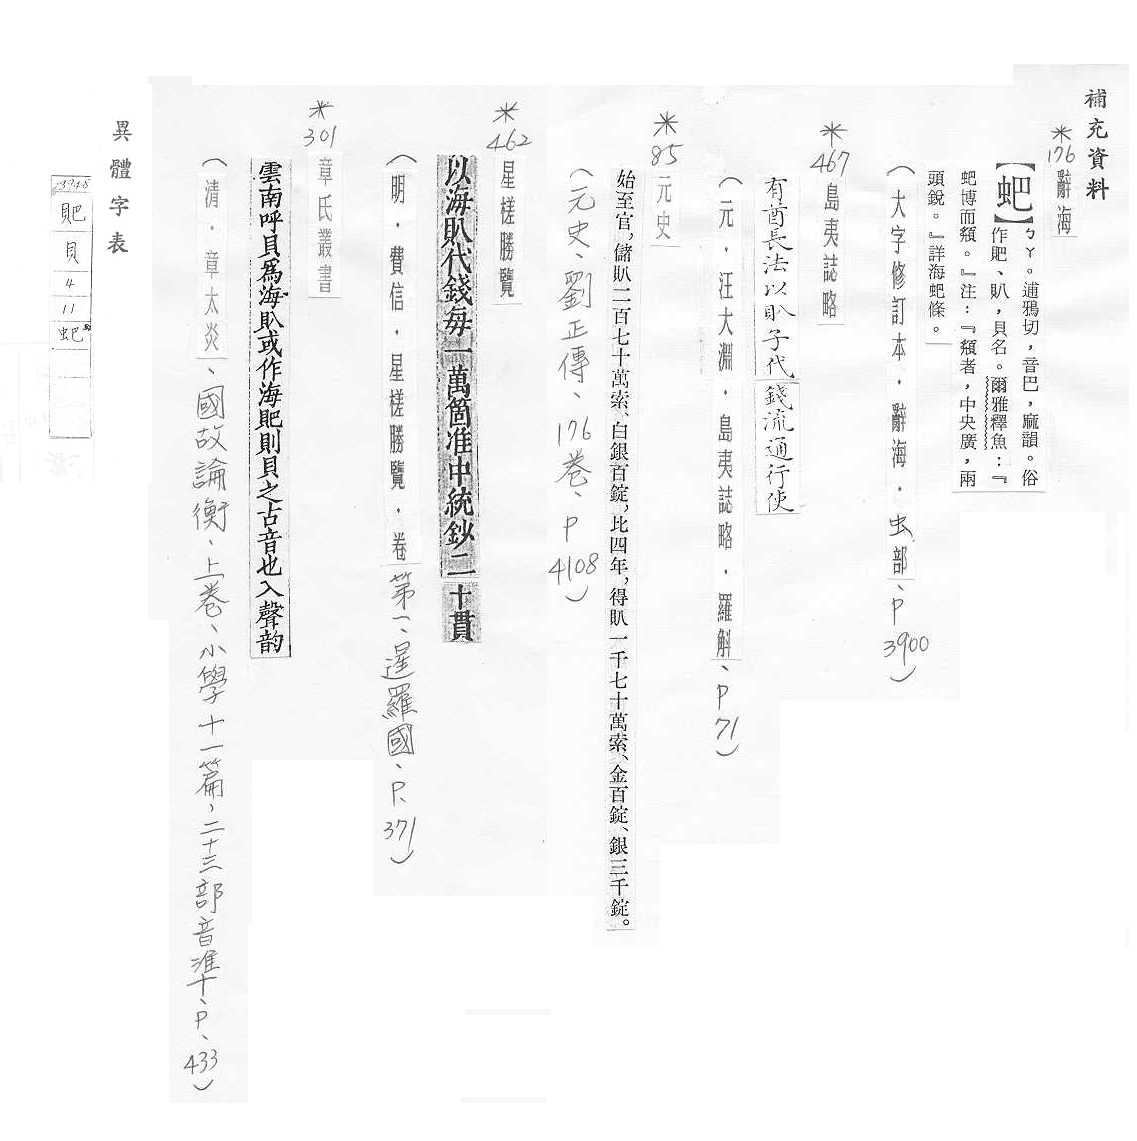 補充資料
*176 辭海
【𧉧】ㄅㄚ。逋鴉切，音巴，麻韻。俗
作𧵅、𧴤，貝名。爾雅釋魚：『
𧉧博而頯。』注：『頯者，中央廣，兩
頭銳。』詳海𧉧條。
（大字修訂本．辭海．虫部、P3900）
*467 島夷誌略
有酋長法以𧴤子代錢流通行使
（元．汪大淵．島夷誌略．羅斛、P71）
*85 元史
始至官，儲𧴤二百七十萬索、白銀百錠，比四年，得𧴤一千七十萬索、金百錠、銀三千錠。
（元史、劉正傳、176卷、P4108）
*462 星槎勝覽
以海𧴤代錢每一萬箇准中統鈔二十貫
（明．費信．星槎勝覽．卷第一、暹羅國、P、371）
*301 章氏叢書
雲南呼貝爲海𧴤或作海𧵅則貝之古音也入聲韵
（清．章太炎、國故論衡、上卷、小學十一篇，二十三部音準十、P、433）
異體字表
𧵅
貝
4
11